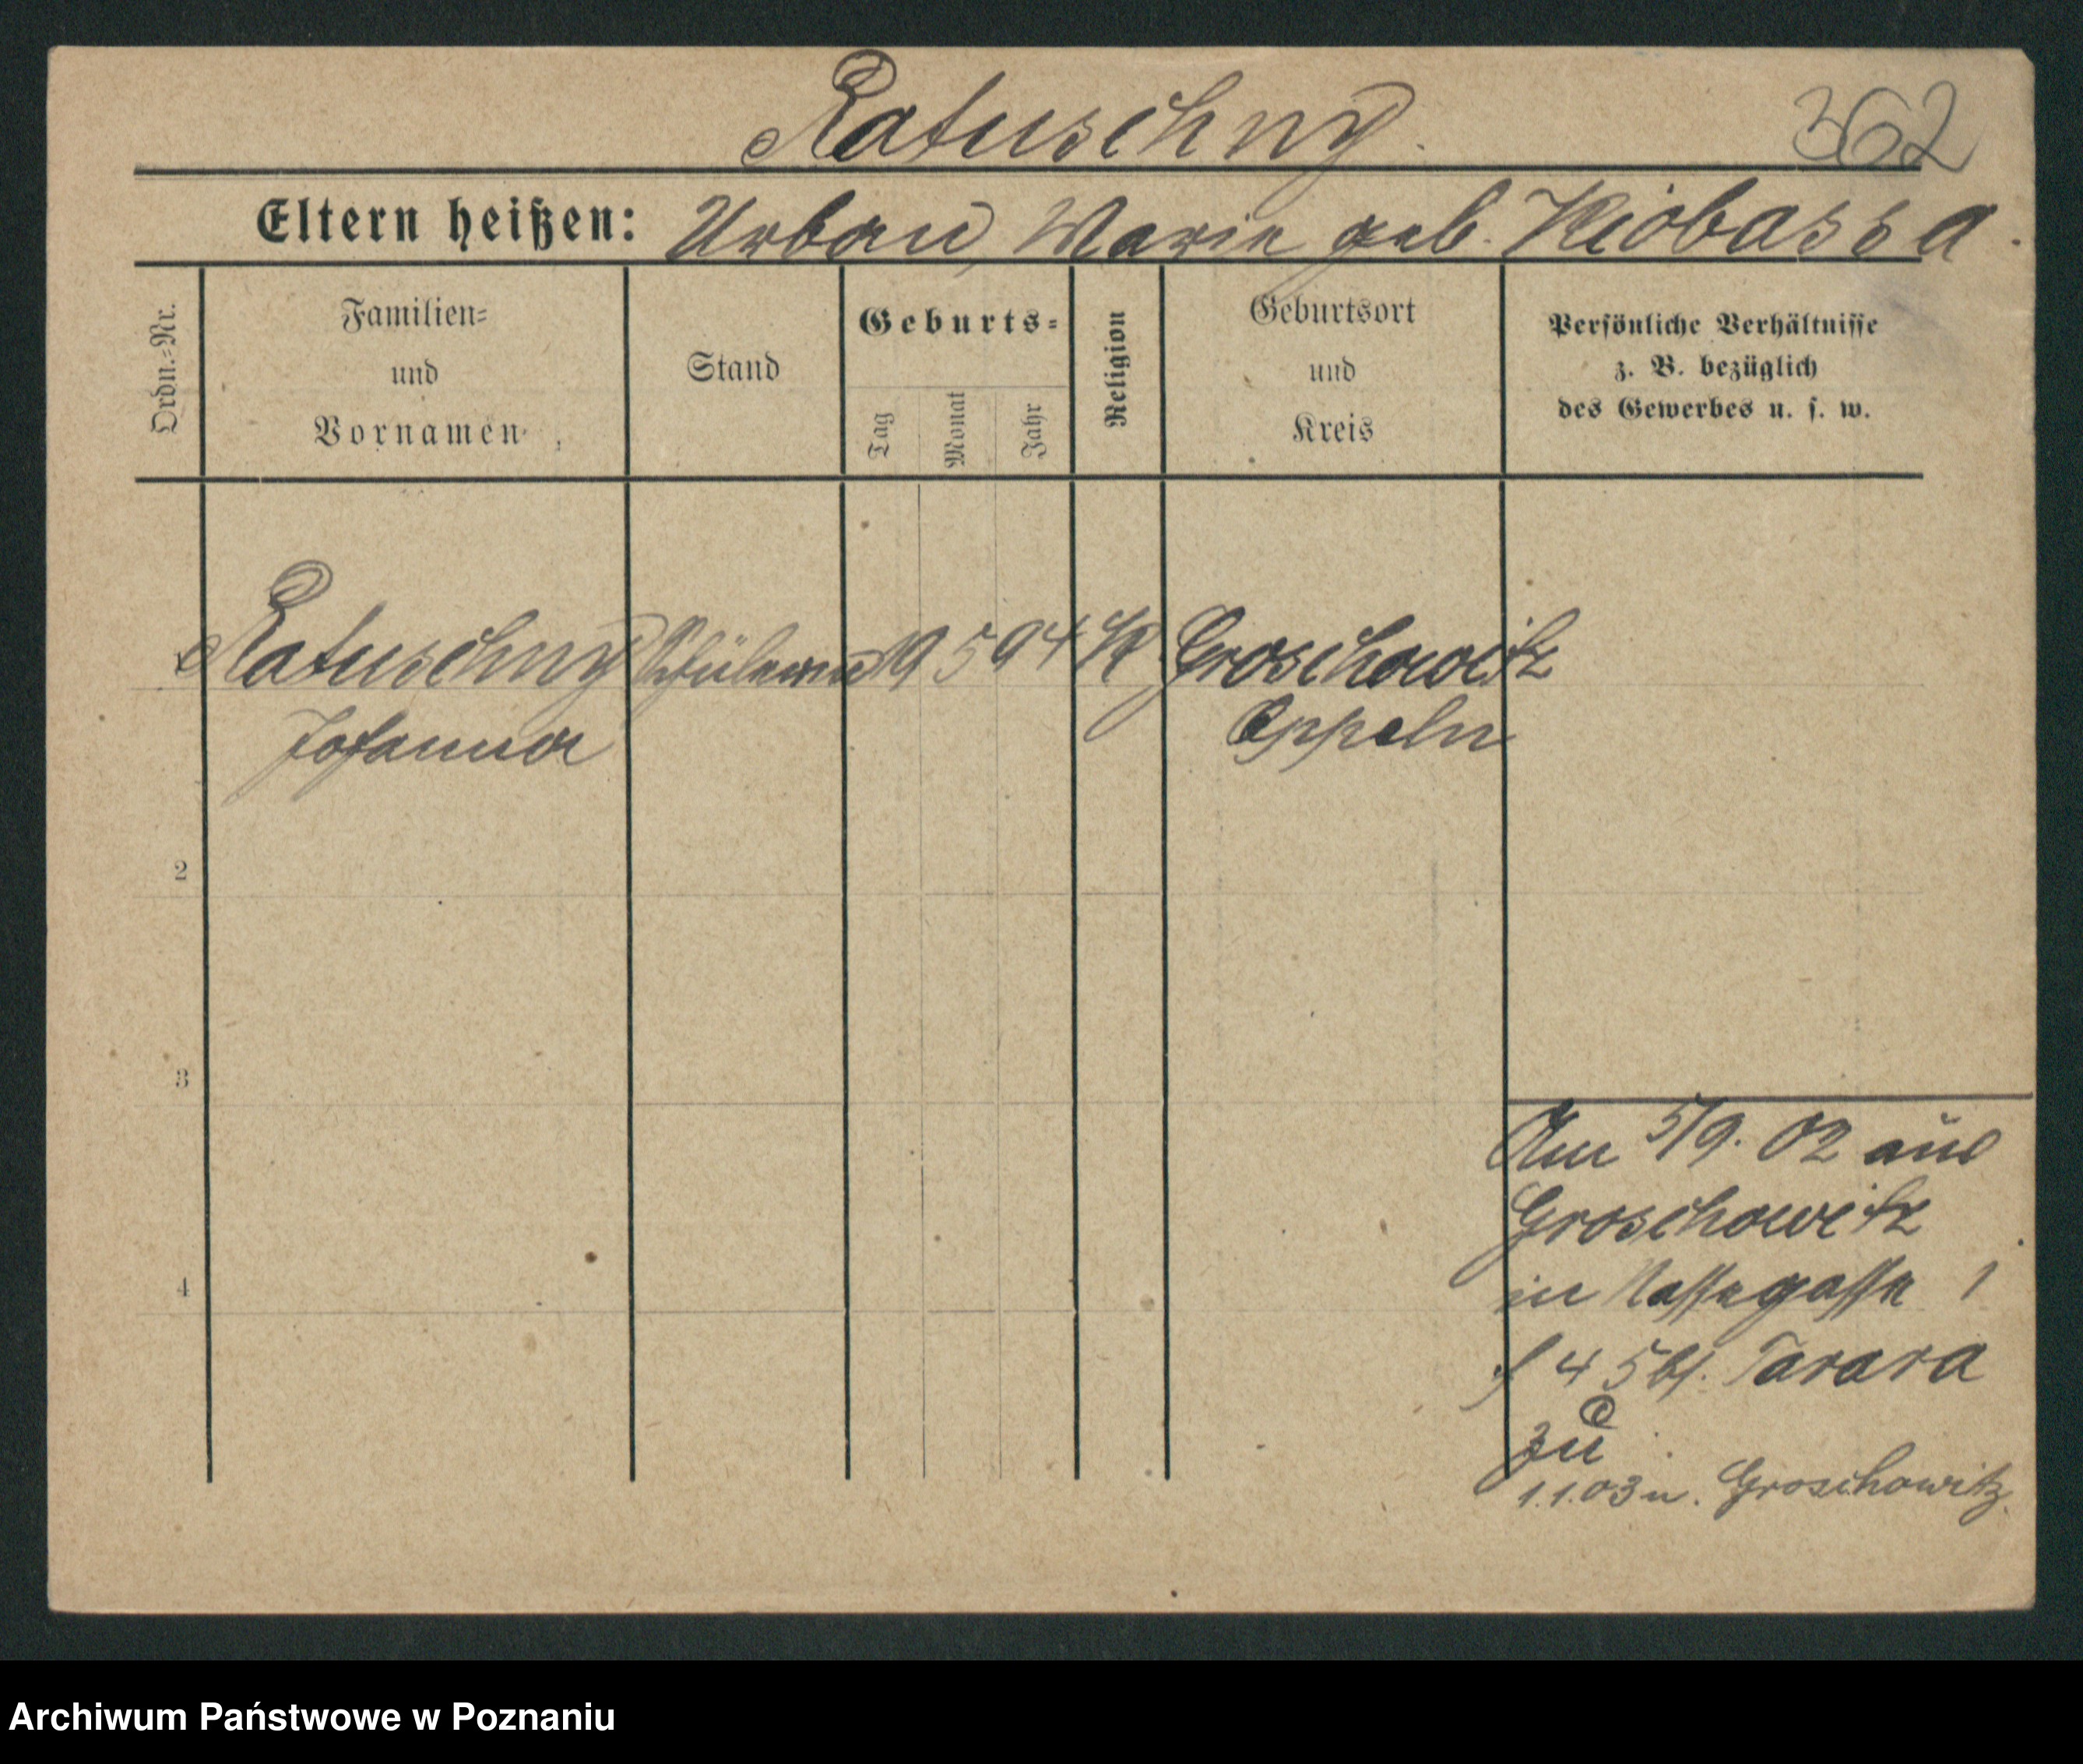 Ratuschny.
362
Eltern heißen: Urban, Marie geb. Kiobassa.
Ordn.-Nr.
Familien-
und
Vornamen
Stand
Geburts-
Tag
Monat
Jahr
Religion
Geburtsort
und
Kreis
Persönliche Verhältnisse
z. B. bezüglich
des Gewerbes u. s. w.
Ratuschny Schülerin 19 5 94 K. Groschowitz
Johanna Oppeln
2
3
4
Am 5/9. 02 aus
Groschowitz
in Nassegasse 1
b/. Tarara
zu
1.1.03 n. Groschowitz.
Archiwum Państwowe w Poznaniu